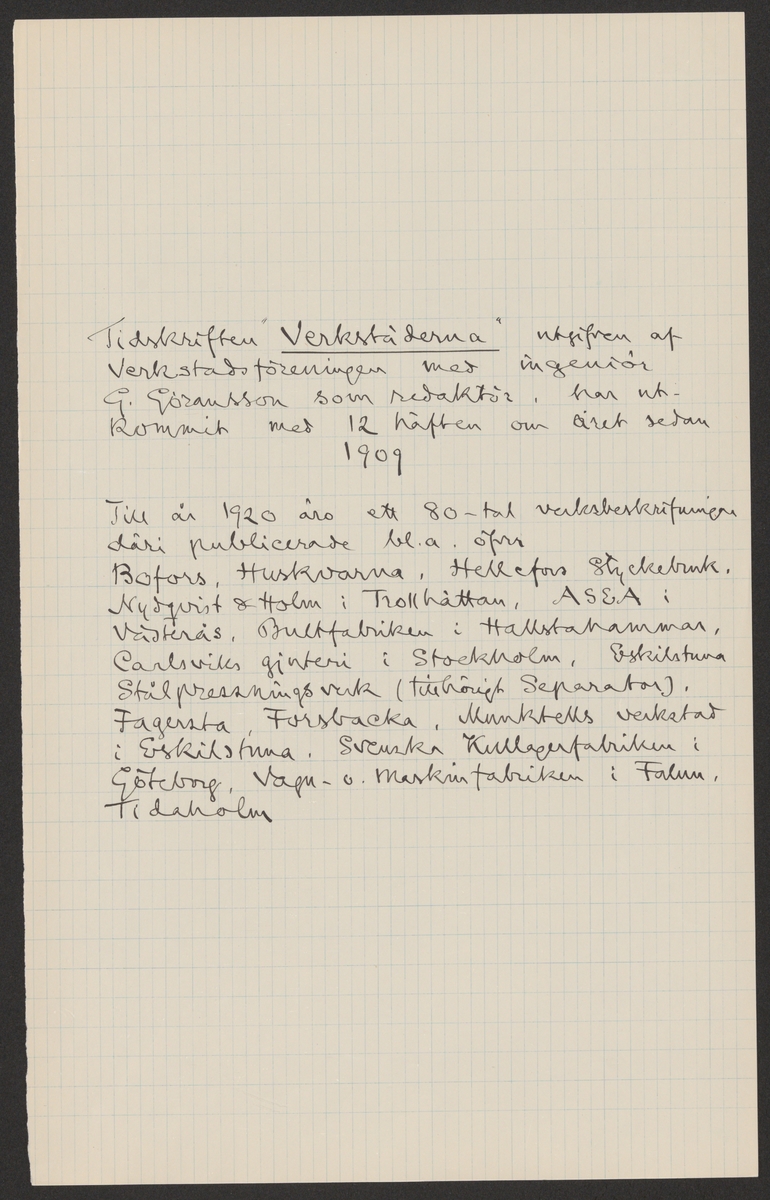 Tidskriften "Verkstäderna" utgifven af
Verkstadsföreningen med ingeniör
G. Göransson som redaktör, har ut-
kommit med 12 häften om året sedan
1909
Till år 1920 äro ett 80-tal verksbeskrifningar
däri publicerade bl.a. öfver
Bofors, Huskvarna, Hellefors Styckebruk,
Nydqvist & Holm i Trollhättan, ASEA i
Västerås, Bultfabriken i Hallstahammar,
Carlsviks gjuteri i Stockholm, Eskilstuna
Stålpressningsverk (tillhörigt Separator),
Fagersta, Forsbacka, Munktells verkstad
i Eskilstuna, Svenska Kullagerfabriken i
Göteborg, Vagn- o. Maskinfabriken i Falun,
Tidaholm